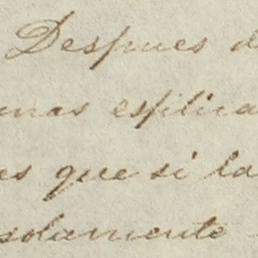 Despues d
unas esplica
es que si la
solamente